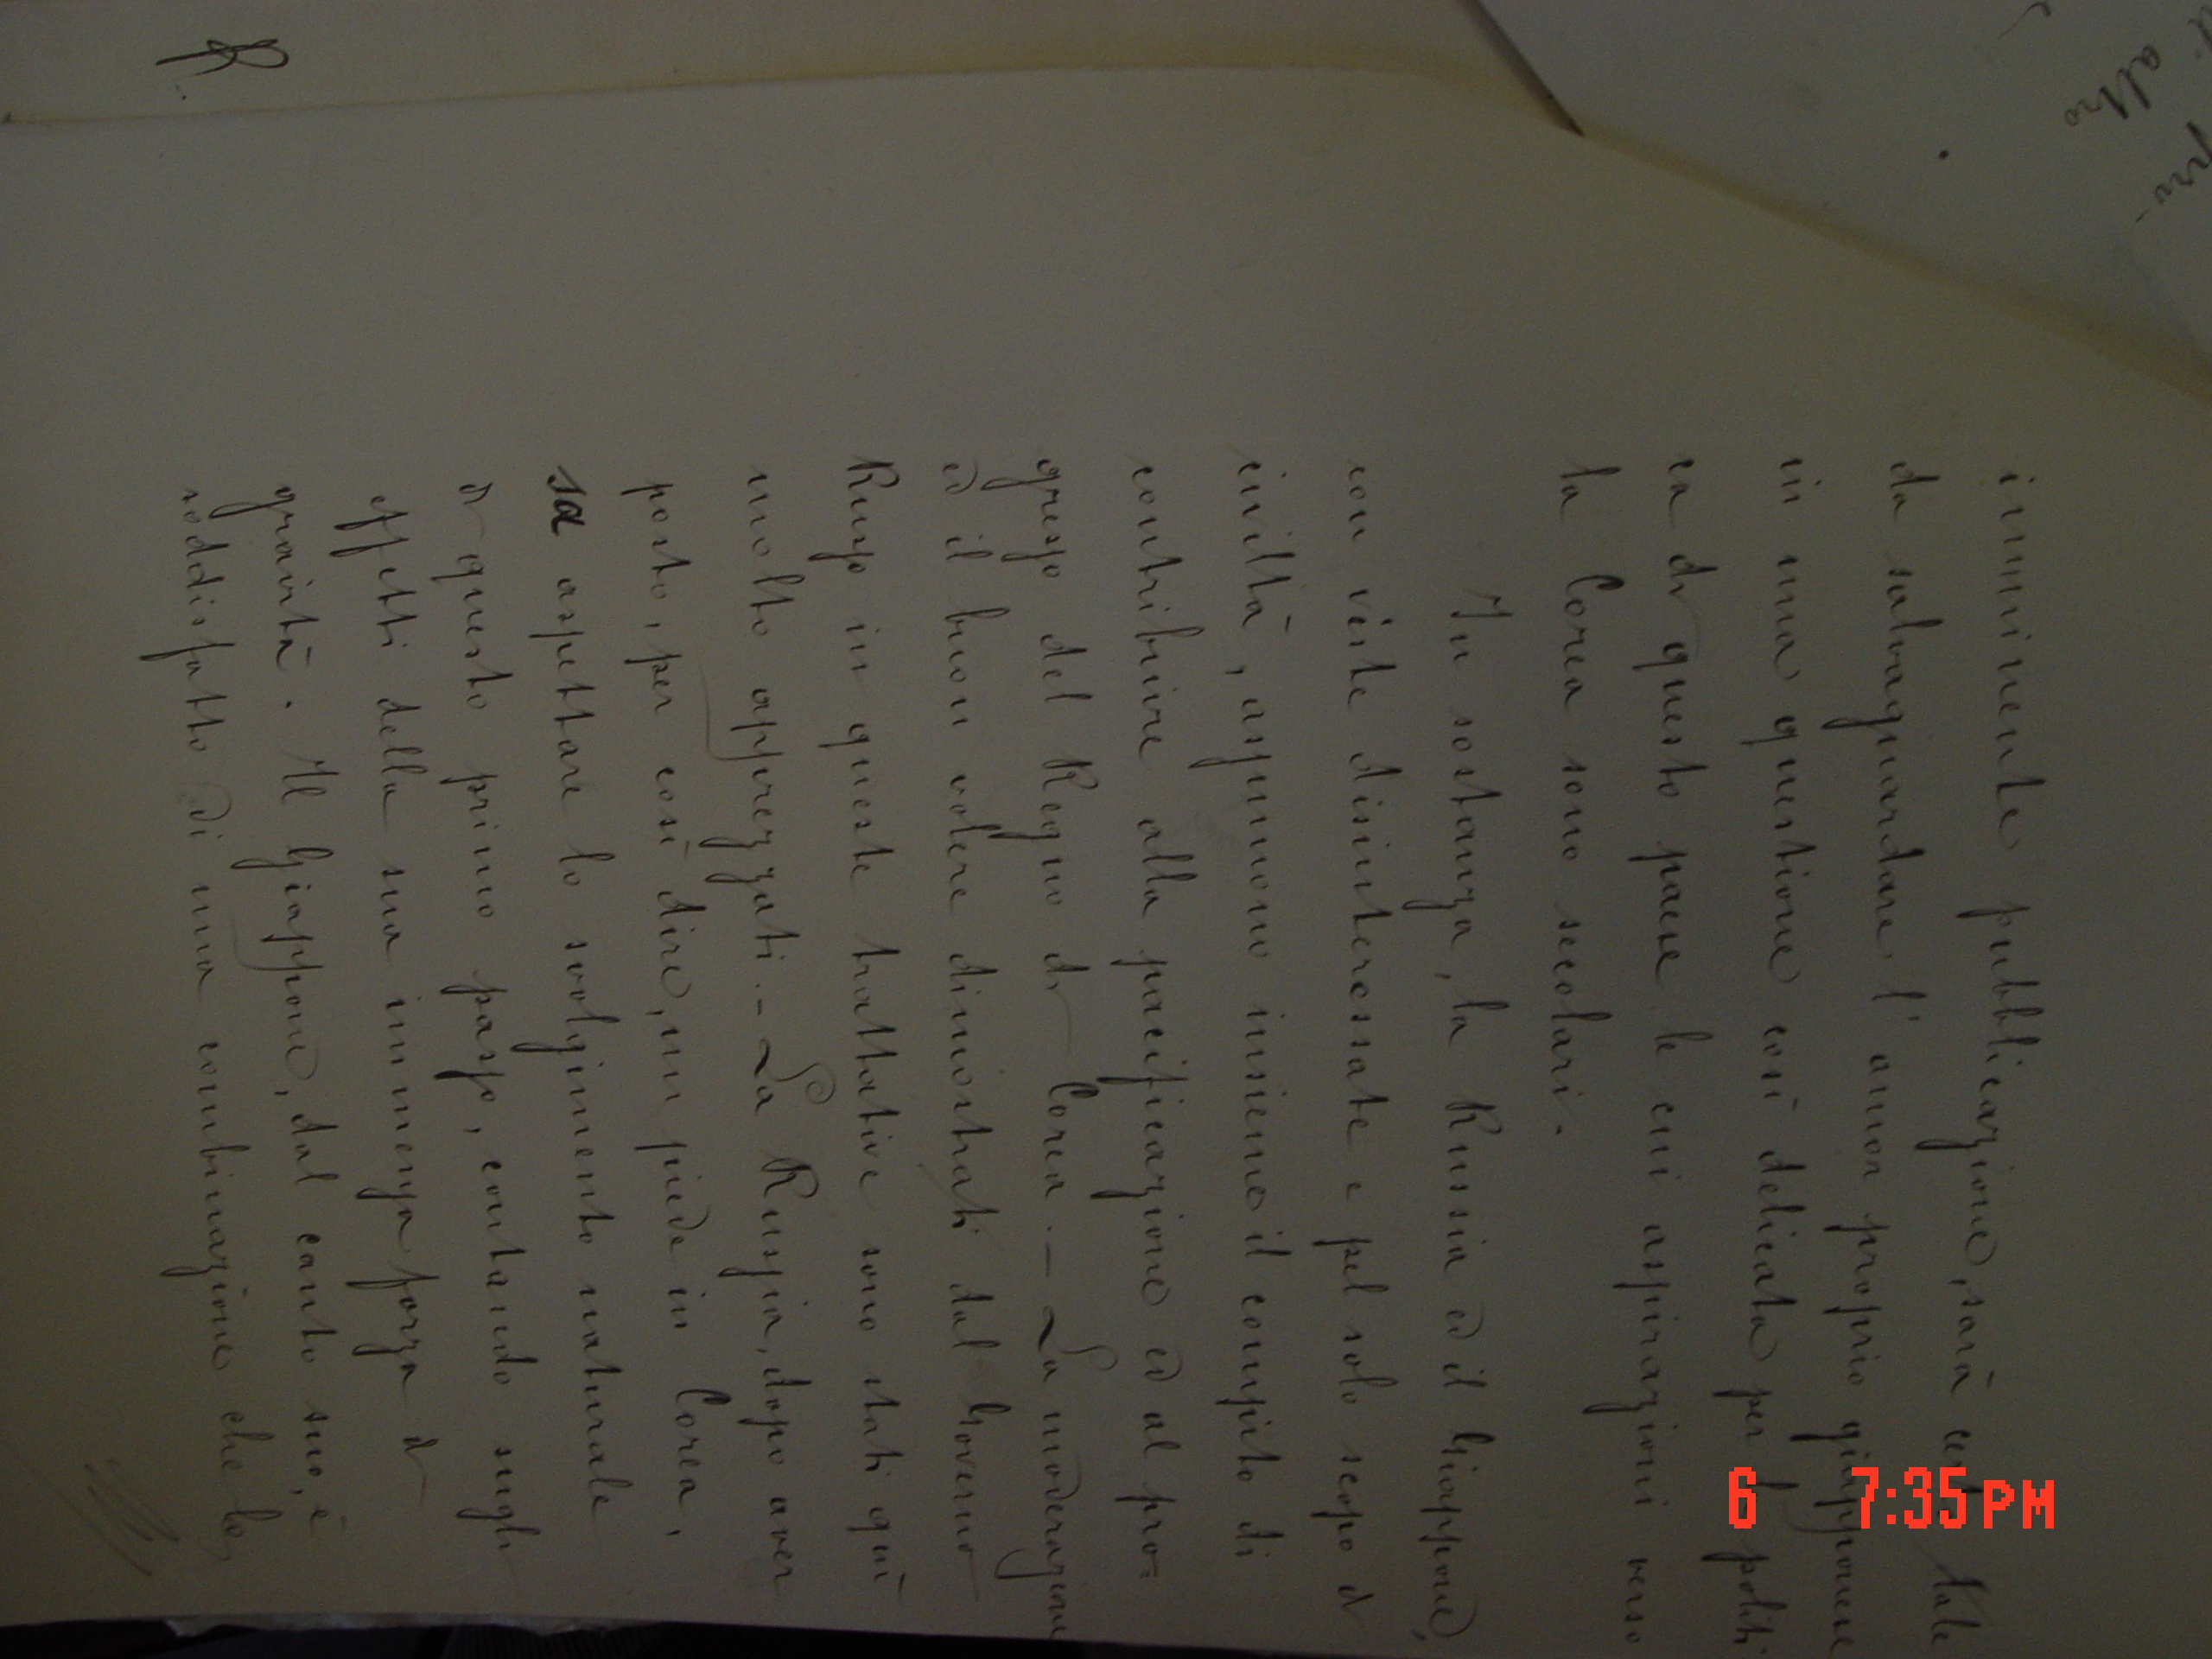 imminente pubblicazione, sarà certo tale
da salvaguardare l'amor proprio giapponese
in una questione così delicata per la politi
ca di questo paese le cui aspirazioni verso
la Corea sono secolari.
In sostanza, la Russia ed il Giappone,
con viste disinteressate e pel solo scopo di
civiltà, assumono insieme il compito di
contribuire alla pacificazione ed al pro=
gresso del Regno di Corea. - La moderazione
ed il buon volere dimostrati dal Governo
Russo in queste trattative sono stati quì
molto apprezzati. - La Russia, dopo aver
posto, per così dire, un piede in Corea,
sa aspettare lo svolgimento naturale
di questo primo passo, contando sugli
effetti della sua immensa forza di
gravità. Il Giappone, dal canto suo, è
soddisfatto di una combinazione che lo
altro
6 7:35 PM